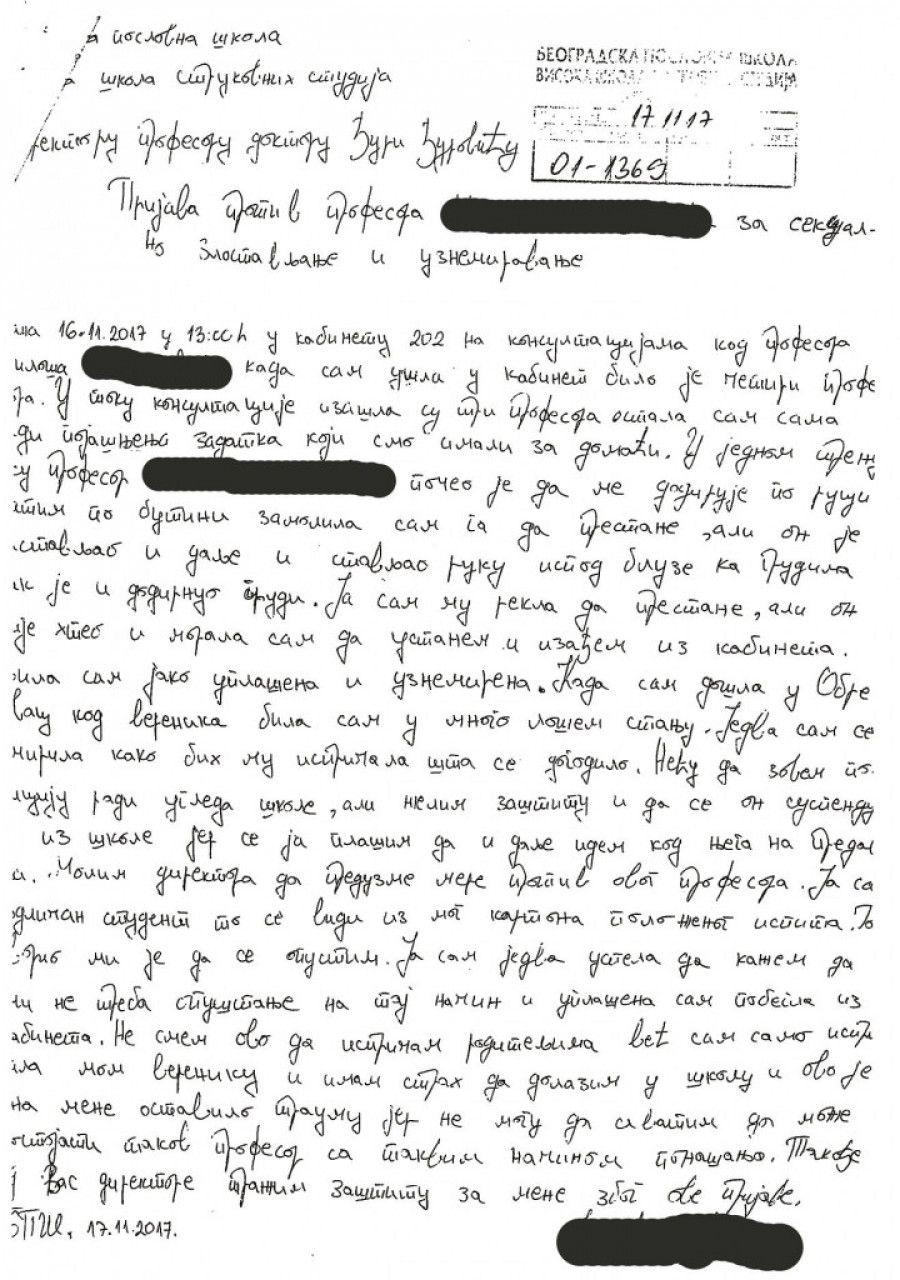 пословна школа
БЕОГРАДСКА ПОСЛОВНА ШКОЛА
школа струковних студија
ВИСОКА ШКОЛА СТУДИЈА
17 11 17
ректору професору доктору Ђури Ђуровићу
01-1369
Пријава против професора за сексуал-
но злостављање и узнемиравање
ма 16.11.2017 у 13:00h у кабинету 202 на консултацијама код професора
илоша када сам ушла у кабинет било је четири профе
ра. У току консултације изашла су три професора остала сам сама
ди појашњења задатка који смо имали за домаћи. У једном трену
су професор почео је да ме додирује по руци
атим по бутини замолила сам га да престане, али он је
стављао и даље и стављао руку испод блузе ка грудима
ак је и додирнуо груди. Ја сам му рекла да престане, али он
није хтео и морала сам да устанем и изађем из кабинета.
била сам јако уплашена и узнемирена. Када сам дошла у Обре
вац код вереника била сам у много лошем стању. Једва сам се
мирила како бих му испричала шта се догодило. Нећу да зовем по
лицију ради угледа школе, али желим заштиту и да се он суспенду
из школе јер се ја плашим да и даље идем код њега на предав
а. Молим директора да предузме мере против овог професора. Ја са
одличан студент то се види из мог картона положеног испита. Го
орио ми је да се опустим. Ја сам једва успела да кажем да
ми не треба опуштање на тај начин и уплашена сам побегла из
абинета. Не смем ово да испричам родитељима већ сам само испр
ила мом веренику и имам страх да долазим у школу и ово је
на мене оставило трауму јер не могу да схватим да може
остојати такав професор са таквим начином понашања. Такође
ј Вас директоре тражим заштиту за мене због ове пријаве.
БПШ, 17.11.2017.